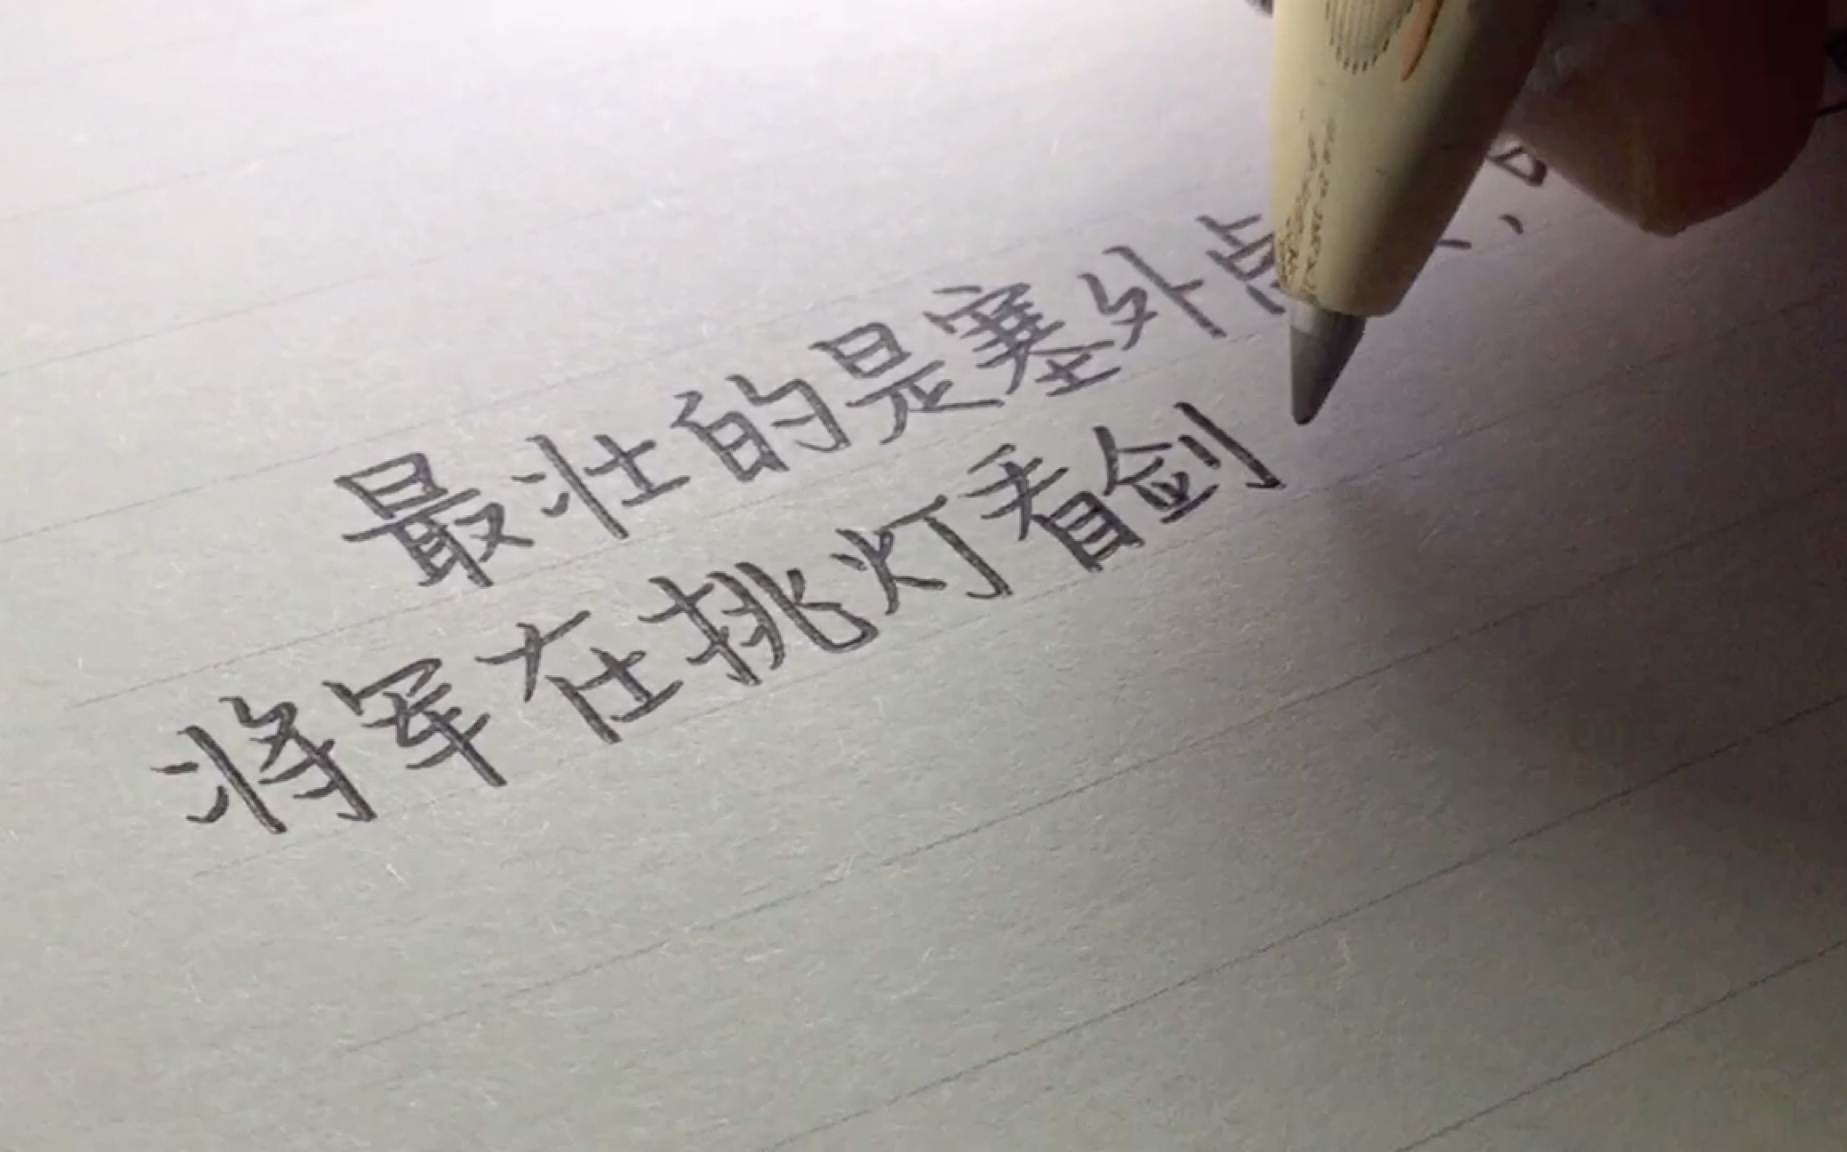 最壮的是塞外点
将军在挑灯看剑